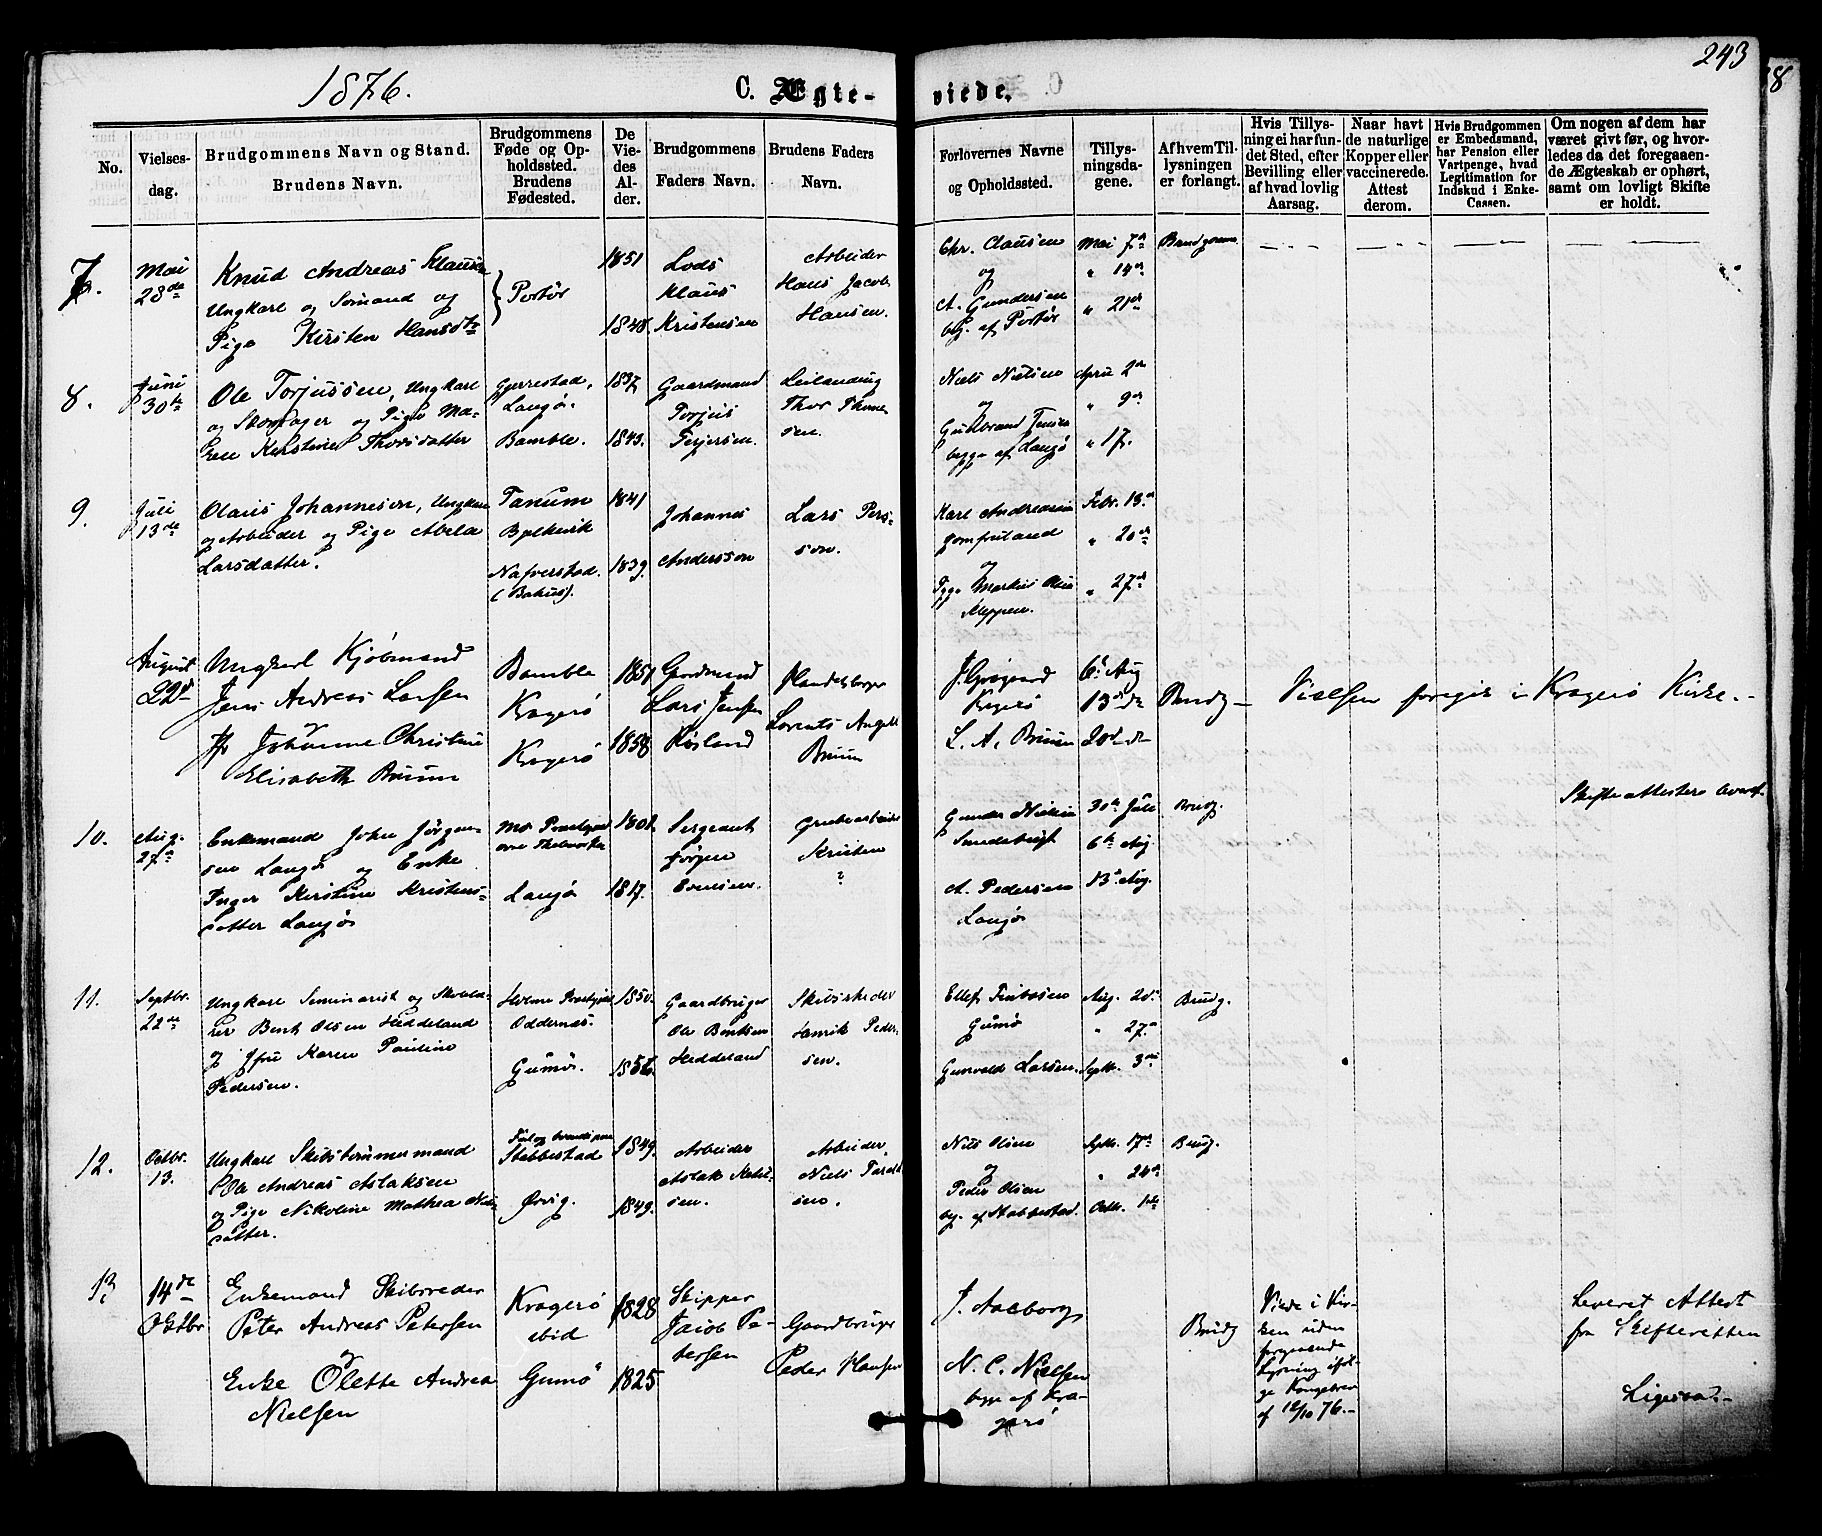 243
1876.
C. Ægte-
viede.
No.
Vielses-
dag.
Brudgommens Navn og Stand.
Brudens Navn.
Brudgommens
Føde og Op-
holdssted.
Brudens
Fødested.
De
Vie-
des
Al-
der.
Brudgommens
Faders Navn.
Brudens Faders
Navn.
Forlovernes Navne
og Opholdssted.
Tillys-
ningsda-
gene.
Af hvem Til-
lysningen
er forlangt.
Hvis Tillys-
ning ei har fun-
det Sted, efter
Bevilling eller
af hvad lovlig
Aarsag.
Naar havt
de naturlige
Kopper eller
vaccinerede.
Attest
derom.
Hvis Brudgommen
er Embedsmand,
har Pension eller
Vartpenge, hvad
Legitimation for
Indskud i Enke-
Cassen.
Om nogen af dem har
været givt før, og hvor-
ledes da det foregaaen-
de Ægteskab er ophørt,
samt om lovligt Skifte
er holdt.
7.
Mai
28de
Knud Andreas Klausen
Ungkarl og Sømand og
Pige Kirsten Hansdtr
Portør
1851
1848.
Lods
Klaus
Kristensen
Arbeider
Hans Jacob
Hansen.
Chr. Clausen
og
A. Gundersen
beg. af Portør
Mai 7de
" 14de
" 21de
Brudgomm.
8.
Juni
30te
Ole Torjussen, Ungkarl
og Pige Ma-
ren Kirstine Thorsdatter
Gjerrestad,
Langø.
Bamble.
1837
1843.
Gaardmand
Torjus
Terjersen.
Leilænding
Thor Thom-
sen.
Niels Nielsen
og
Gulbrand Jensen
begge af Langø
April 2den
" 9de
" 17.
9.
Juli
13de
Olaus Johannesen, Ungkarl
og Arbeider og Pige Abela
Larsdatter.
Tanum
Naverstad.
(Bahus).
1841
1839.
Johannes
Andersson
Lars Pers-
son.
Karl Andreasen
Jomfruland
og
Kleppen.
Febr. 13de
" 20de
" 27de
August
22de
Ungkarl Kjøbmand
Jens Andreas Larsen
og
Jfr Johanne Christine
Elisabeth Bruun
Bamble
Kragerø
Kragerø
1851
1858
Gaardmand
Lars Jensen
Handelsborger
Lorents Angell
Bruun
Kragerø
L. A. Bruun
6t Aug
13de
20de
Brudg
Vielsen foregik i Kragerø Kirke.
10.
Aug.
27de
Enkemand John Jørgen-
sen Langø og Enke
Inger Kirstine Kristens-
datter Langø
Langø
1801.
1817.
Sergeant
Jørgen
Evensen.
Grubearbeider
Kristen
?
Gunder Nielsen
A. Pedersen
Langø
30te Juli
6te Aug.
13de Aug.
Brudg.
Skifteattester
11.
Septbr.
22de
Ungkarl Seminarist og Skolelæ-
rer Bent Olsen Heddeland
og Jfru Karen Pauline
Pedersen.
Holme Prestegjeld
Oddernæs.
Gumø.
1850.
1856.
Gaardbruger
Ole Bentsen
Heddeland
Skibsrheder
Henrik Peder-
sen.
Gumø
Gunvald Larsen.
Aug. 20de
" 27de
Septbr. 3die
Brudg.
12.
Octbr.
13.
Ungkarl Skibstømmermand
Ole Andreas Aslaksen
og Pige Nikoline Mathea Niels-
datter.
Stabbestad
Ørvig.
1849.
1849.
Arbeider
Aslak
sen.
Arbeider
Niels
sen.
Nils Olsen
og
Peder Olsen
beg. af Stabbestad.
Septbr. 17de
" 24de
Octbr. 1ste
Brudg.
13
14de
Oktbr
Enkemand Skibsreder
Peter Andreas Petersen
og
Enke Olette Andrea
Nielsen
Kragerø
ibid
Gumø
1828
1825
Skipper
Jacob Pe-
tersen
Gaardbruger
Peder Hansen
J. Aalborg
N. C. Nielsen
begge af Kra-
gerø
Brudg
Viede i Kir-
ken uden
foregaaende
Lysning ifølg-
ge Kongebrev
af 12/10 76.
Leveret Attest
fra Skifteretten
Ligesaa.